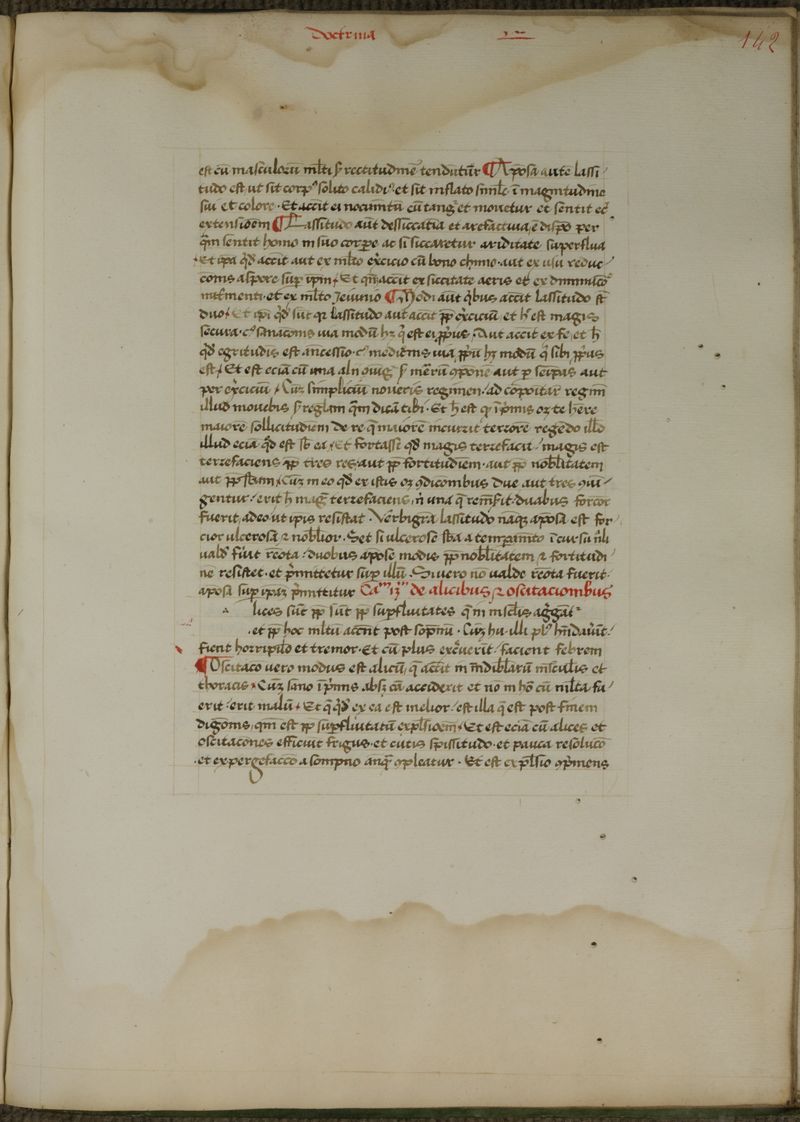 Doctrina
142
est cū masculorū mlti s̄ rectitudinē tendūtur ¶ Aposā autē lassi
tudo est ut sit corpꝰ solito calidiꝰ et sit inflato simile ī magnitudine
sui et colore · Et accit ei nocumtū cū tangit et mouetur et sentit et̄
extensionem ¶ Lassitudo aūt dessiccatiua et arefactiua ē dispō per
quā sentit homo in suo corpore ac si siccaretur ariditate superflua
Et ipā qd̄ accit aut ex mlto exercicio cū bono chimo · aut ex usu reduc
cionis aspere sup ipm · Et qn̄ accit ex siccitate aeris et ex diminucōe
nutrimenti · et ex mlto Jeiunio ¶ Modi aūt quibus accit lassitudo st̄
duo · Et ipi qd̄ sūt qꝛ lassitudo aut accit pp̄ exercicium et h̄ est magis
secura · sanacionis uia modū hꝫ q̄ est ei ꝓpriꝰ · Aut accit ex se et h̄
qd̄ egritudis est ancessio · medicīnis uia ꝓpriū hꝫ modū q̄ sibi ꝓpriꝰ
est · Et est eciā cū una alii iūgitur s̄ mērū oponē aut p seipas aut
per exercicium · Cuꝫ simplicium noueris regimen · ad copoitar regim
illud mouebis s̄ reglam quā dicā tibi · Et h̄ est qꝛ īprimis oꝫ te h̄ere
maiorē sollicitudinem de re q̄ maiorē incurrit terrorē regēdo illd
illud eciā qd̄ est sb ea · Et fortassis qd̄ magis terrefacit magis est
terrefaciens pp̄ tres res aut pp̄ fortitudinem · aut pp̄ nobilitatem
aut pp̄ stam · Cuꝫ in eo qd̄ ex istis oꝫ cōdicionibus due aut tres iūgi
gentur · erit h̄ magꝭ terrefaciens, n̄ una q̄ remsit · duabus forcior
fuerit, adeo ut ipis resistat · Verbigrā lassitudo naqꝫ aposā est for
cior ulcerosā ⁊ nobilior · Set si ulcerose stā a tempamīto īcursu nīli
uald' fūit recta · duobus apose modis pp̄ nobilitatem ⁊ fortitudi
ne resistet · et prīmittetur sup illū · Si uero nō ualde recta fuerit
aposā sup ipaꝫ prīmittitur Caᵐ iꝫᵐ de alicibus ⁊ oscitacionibus
lices sūt pp̄ sūt pp̄ supfluitates q̄ in misclis aggati
et pp̄ hoc mltū accūt post sopnū · Cuꝫ hu · illi plꝰ
fient horripilo et tremor · Et cū plus excūerit facient febrem
¶ Oscitaco uero modus est alicū, q̄ accit in mādiblarū musculis et
thoracis · Cuꝫ sano īprimis absqꝫ cā acciderit et nō in hō cū mlta fu
erit erit malū · Et q̄ qd̄ ex ea est melior est illa q̄ est post finem
digōnis, qm̄ est pp̄ supfluitatū explsioem · Et est eciā cū alices et
oscitacōnes efficiut frigus · et cutis spissitudo · et pauca resolucō
et expergefaccō a sompno anq̄ opleatur · Et est explsio opmens